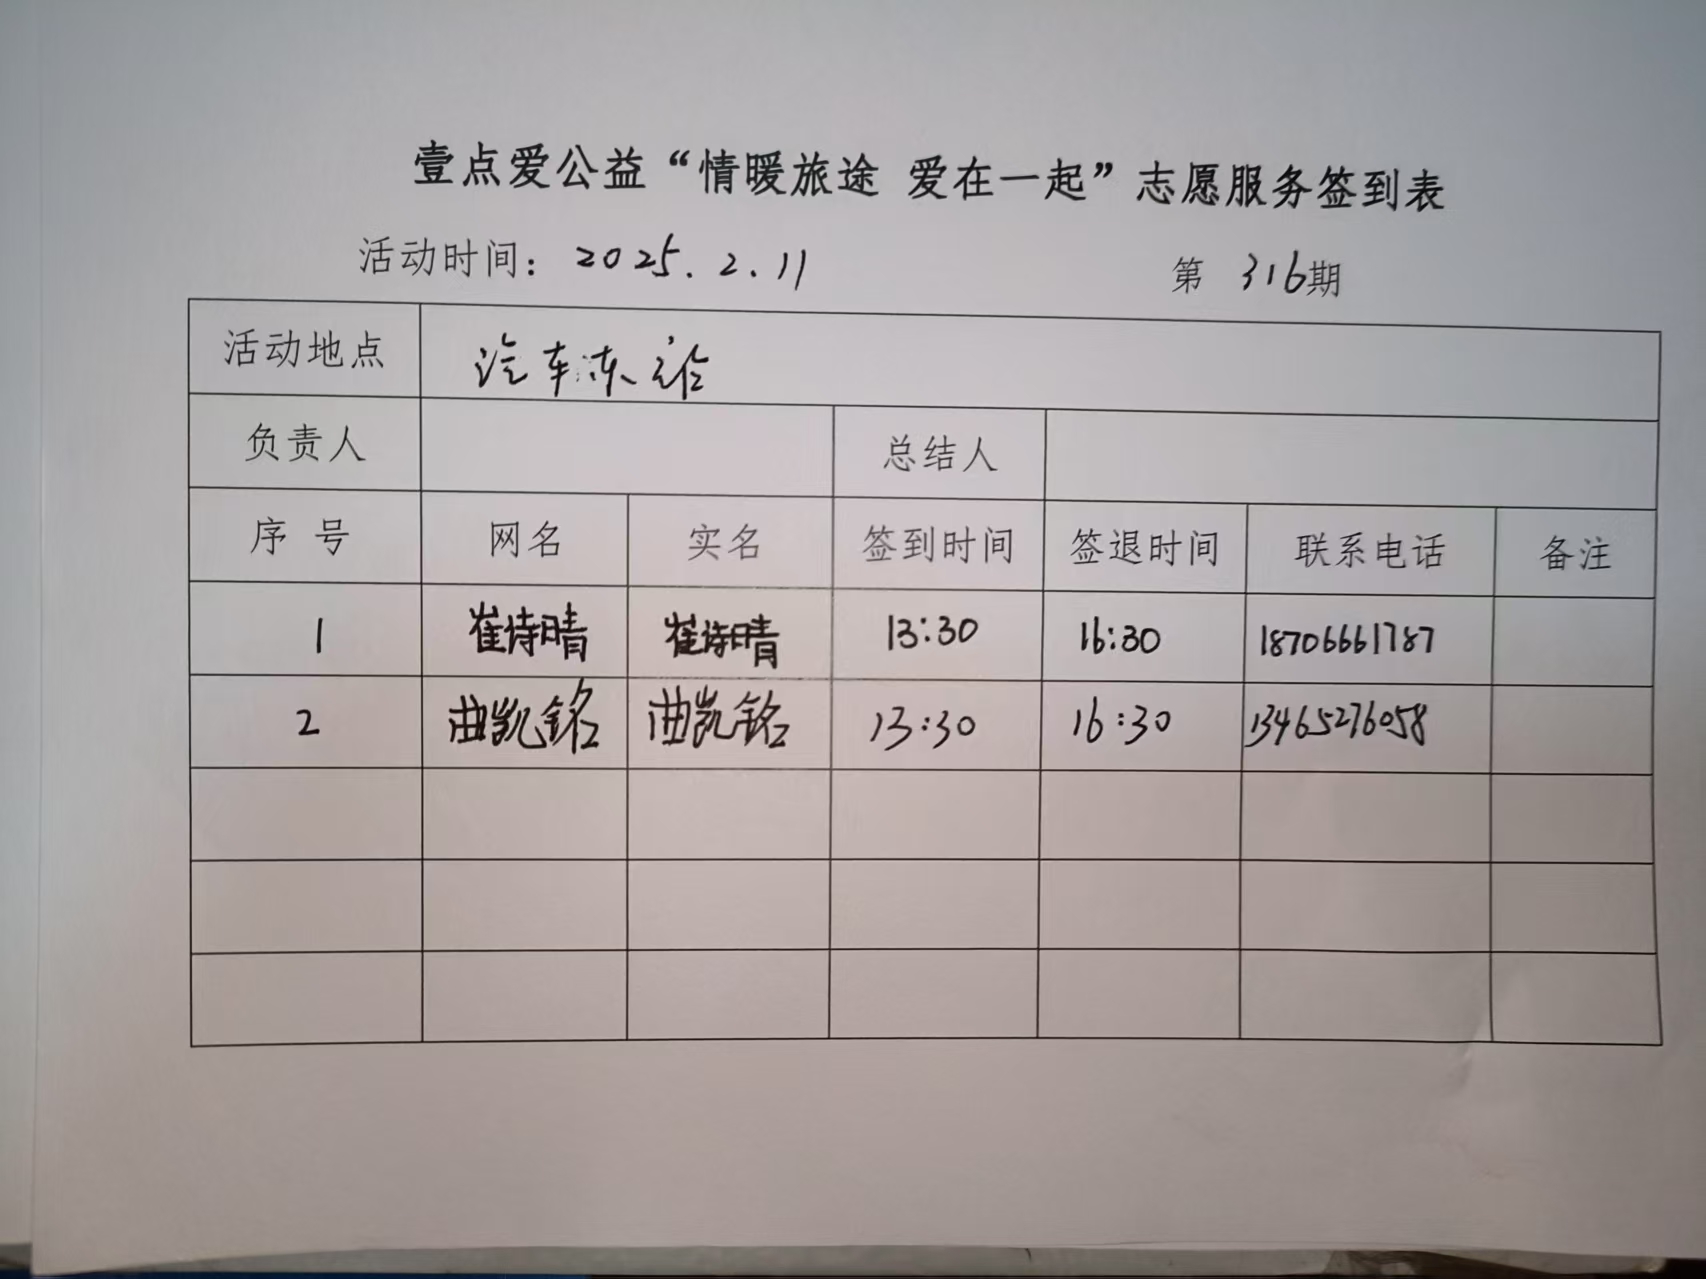 壹点爱公益“情暖旅途 爱在一起”志愿服务签到表
活动时间：2025.2.11 第 316期
活动地点 汽车东站
负责人 总结人
序 号 网名 实名 签到时间 签退时间 联系电话 备注
1 崔诗晴 崔诗晴 13:30 16:30 18706661787
2 曲凯铭 曲凯铭 13:30 16:30 13465276058